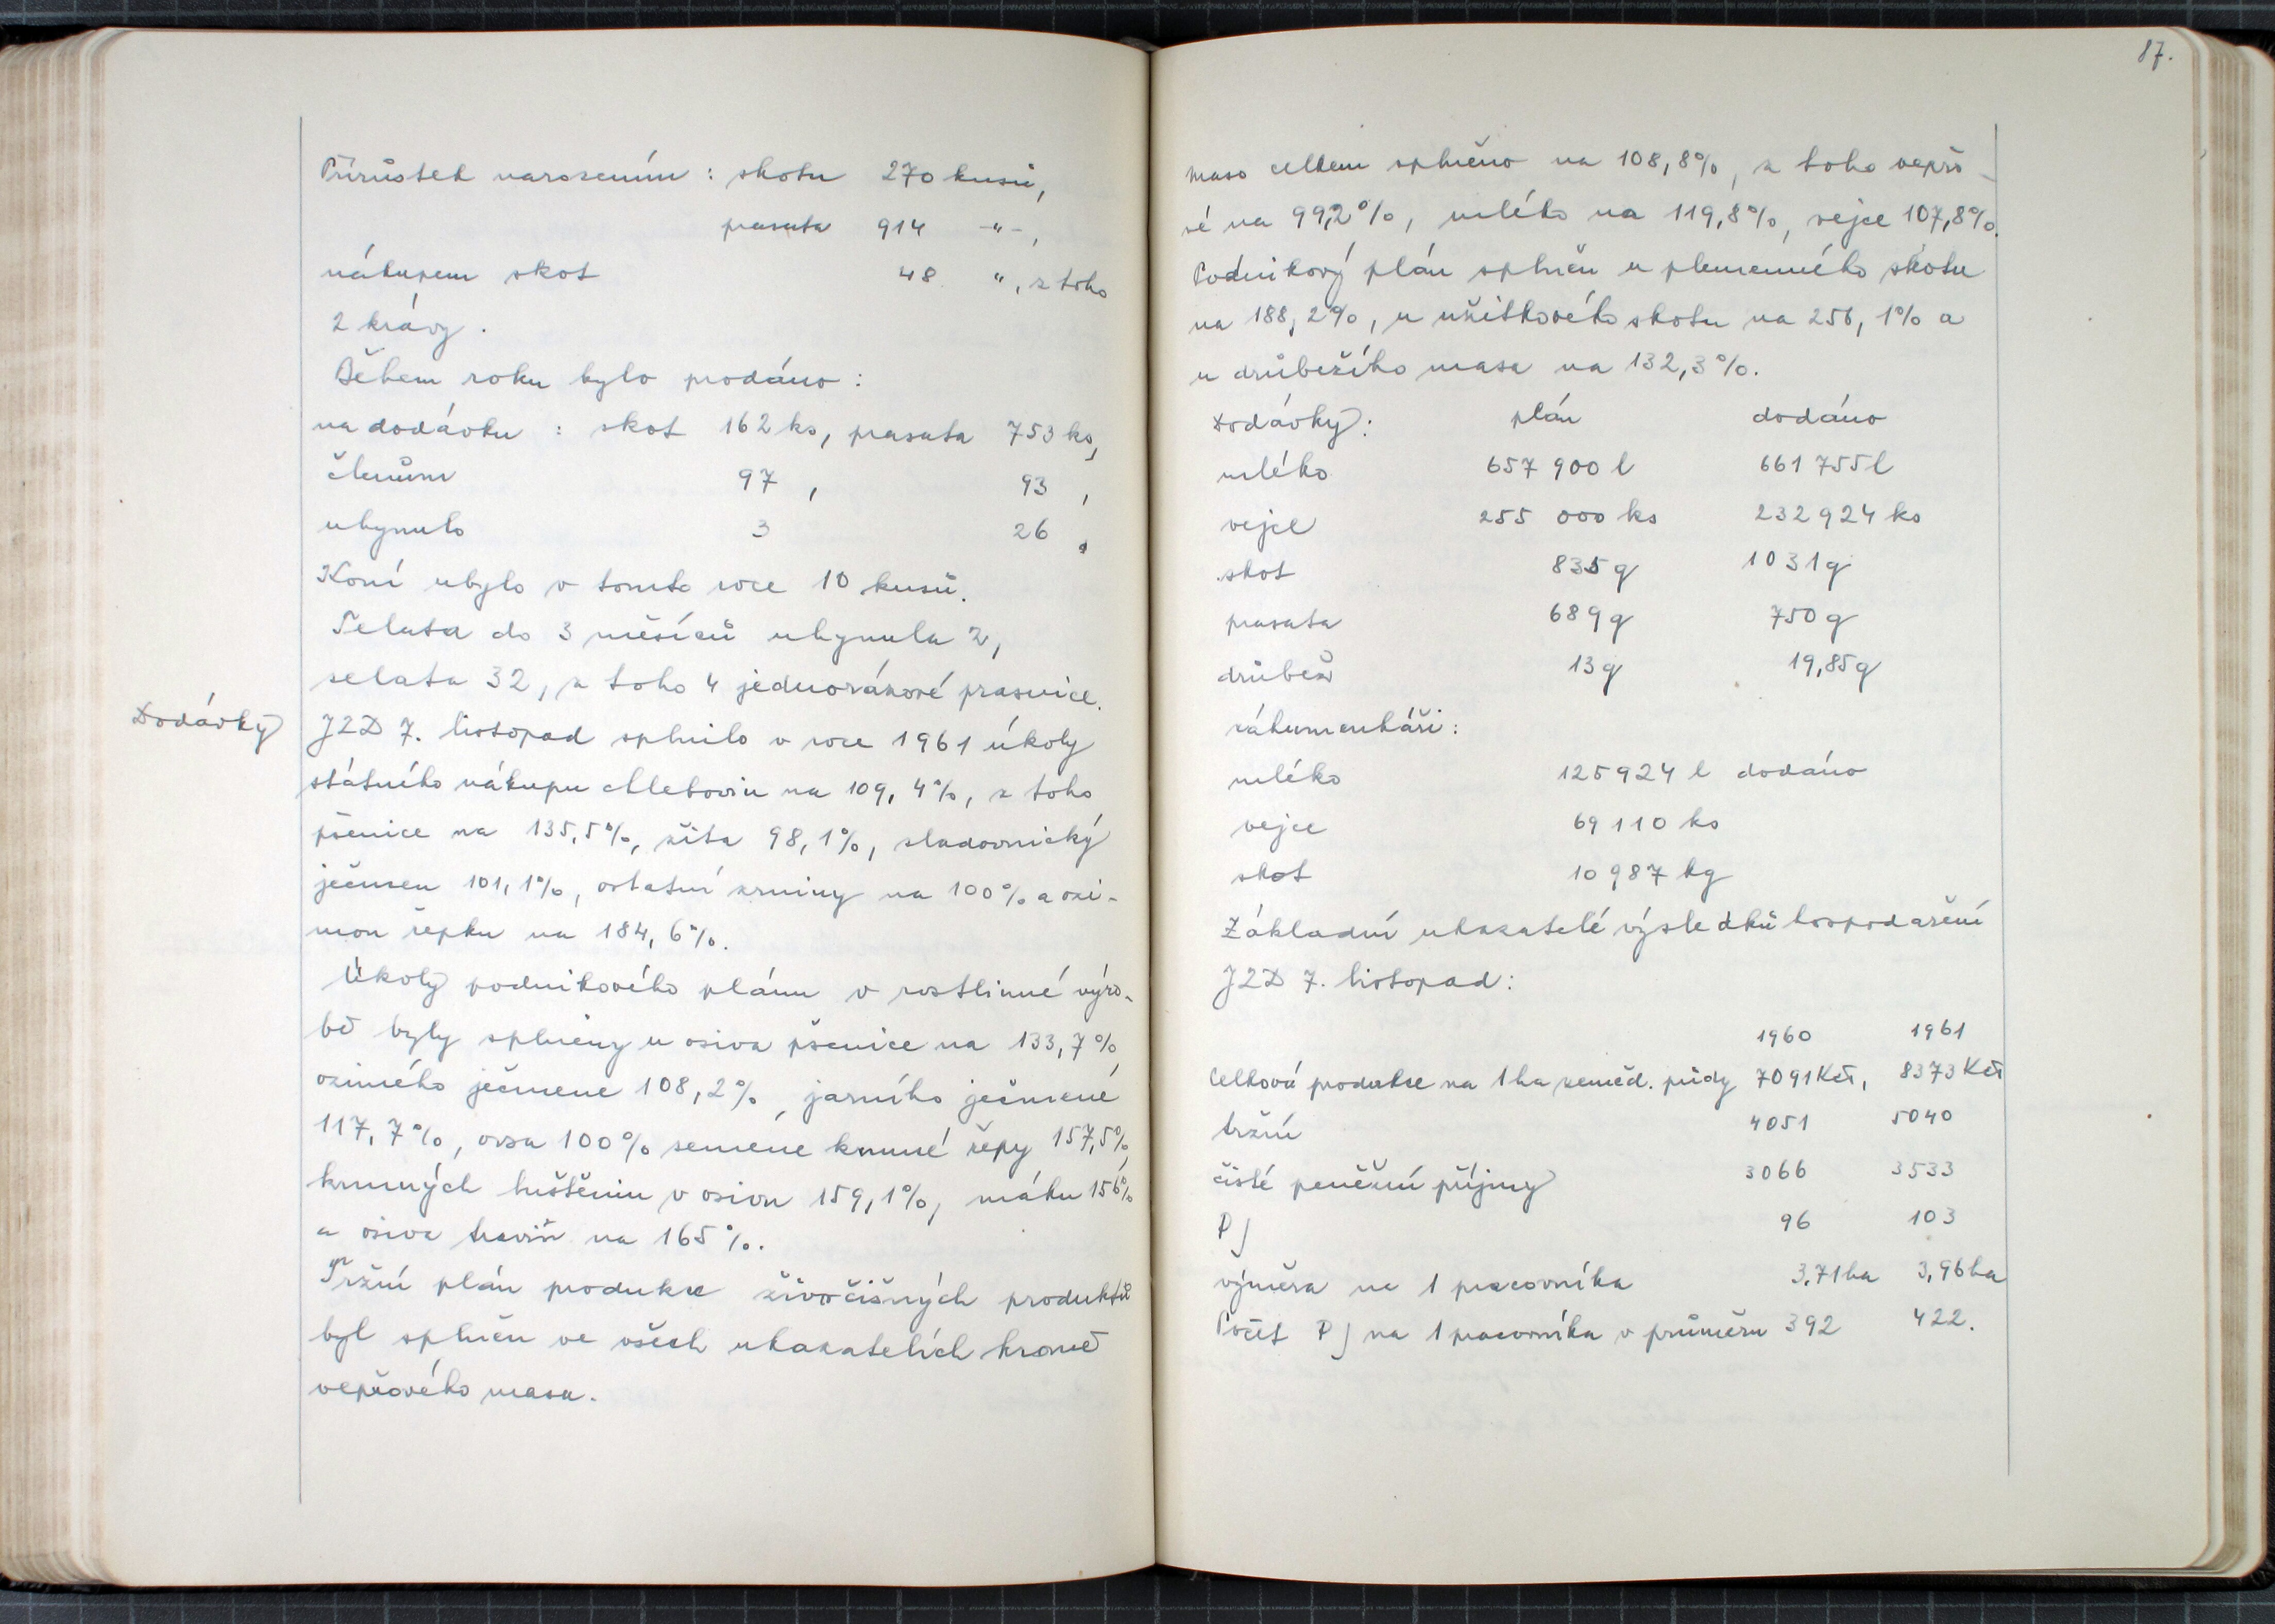 Přírůstek narozením : skotu 270 kusů,
prasata 914 -"-,
nákupem skot 48 ", z toho
2 krávy.
Během roku bylo prodáno :
na dodávku : skot 162 ks, prasata 753 ks,
členům 97 , 93 ,
uhynulo 3 26 .
Koní ubylo v tomto roce 10 kusů.
Telata do 3 měsíců uhynula 2,
selata 32, z toho 4 jednorázové prasnice.
Dodávky
JZD 7. listopad splnilo v roce 1961 úkoly
státního nákupu chlebovin na 109,4%, z toho
pšenice na 135,5%, žita 98,1%, sladovnický
ječmen 101,1%, ostatní zrniny na 100% a ozi-
mou řepku na 184,6%.
Úkoly podnikového plánu v rostlinné výro-
bě byly splněny u osiva pšenice na 133,7%,
ozimého ječmene 108,2%, jarního ječmene
117,7%, ovsa 100% semene krmné řepy 157,5%,
krmných luštěnin v osivu 159,1%, máku 156%
a osiva travin na 165%.
Tržní plán produkce živočišných produktů
byl splněn ve všech ukazatelích kromě
vepřového masa.
87.
maso celkem splněno na 108,8%, z toho vepřo-
vé na 99,2%, mléko na 119,8%, vejce 107,8%.
Podnikový plán splněn u plemenného skotu
na 188,2%, u užitkového skotu na 256,1% a
u drůbežího masa na 132,3%.
Dodávky: plán dodáno
mléko 657 900 l 661 755 l
vejce 255 000 ks 232 924 ks
skot 835 q 1031 q
prasata 689 q 750 q
drůbež 13 q 19,85 q
záhumenkáři:
mléko 125924 l dodáno
vejce 69 110 ks
skot 10 987 kg
Základní ukazatelé výsledků hospodaření
JZD 7. listopad:
1960 1961
Celková produkce na 1 ha zeměd. půdy 7091 Kčs, 8373 Kčs
tržní 4051 5040
čisté peněžní příjmy 3066 3533
PJ 96 103
výměra na 1 pracovníka 3,71 ha 3,96 ha
Počet PJ na 1 pracovníka v průměru 392 422.